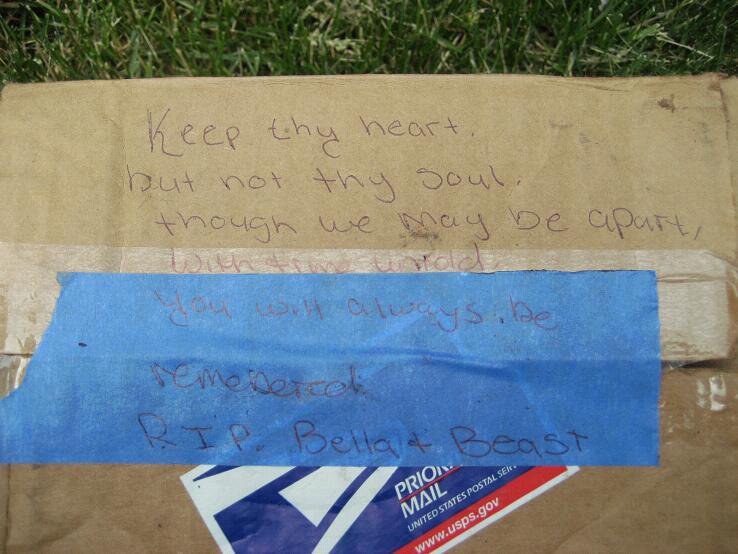 Keep thy heart,
but not thy soul.
though we may be apart,
with time untold,
You will always be
remebered.
R.I.P. Bella + Beast
PRIOR
MAIL
UNITED STATES POSTAL SER
www.usps.gov